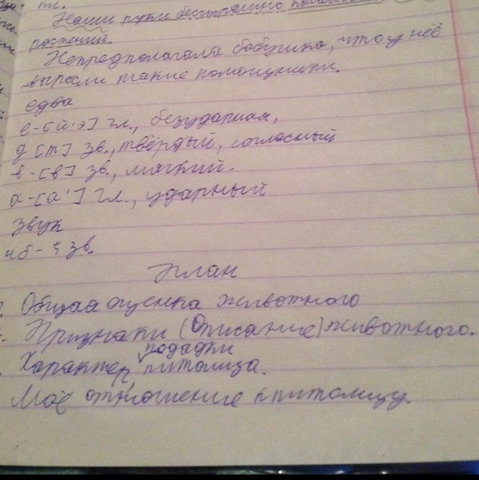 Наши руки бесшумно
растений.
Непредполагала бабушка, что у неё
выросли такие помощники.
едва
е-[й'э] гл., безударная,
д [т] зв., твёрдый, согласный
в-[в] зв., мягкий.
а-[а'] гл., ударный
звук
4 б - 5 зв
План
Общая оценка животного
Признаки (Описание) животного.
повадки
Характер питомца.
Моё отношение к питомцу.